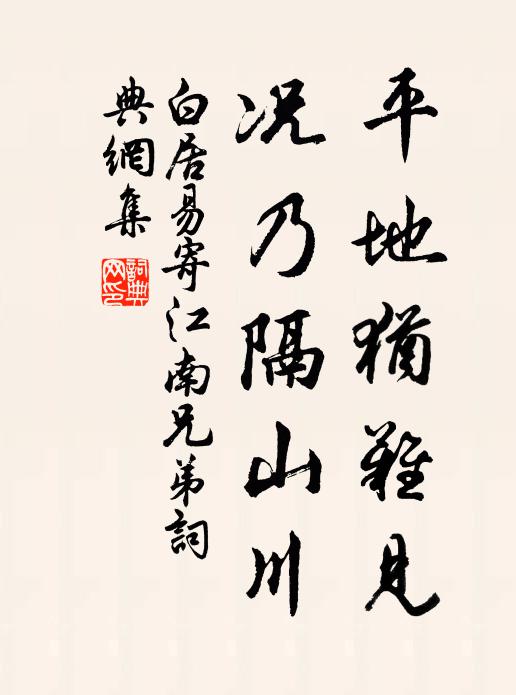 平地猶難見
况乃隔山川
白居易寄江南兄弟詞
典網集
詞典
网印